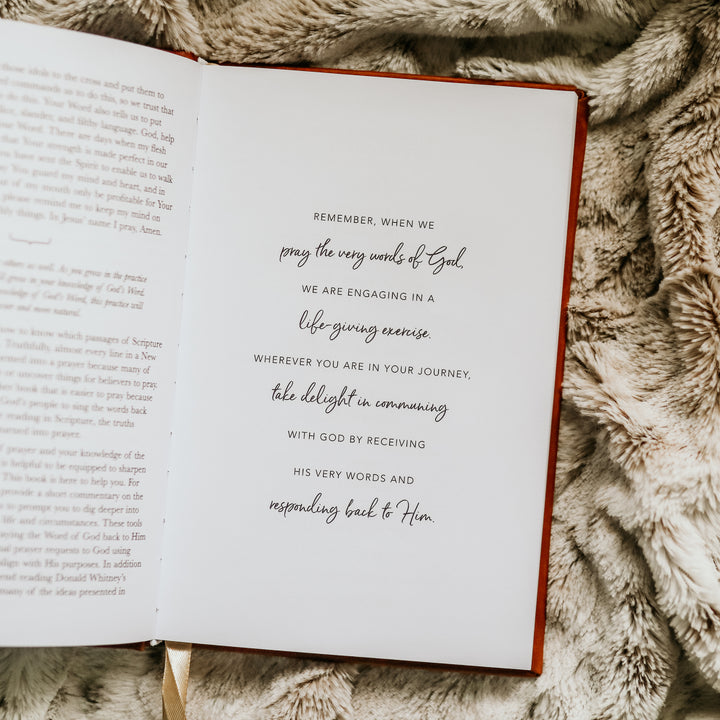 those idols to the cross and put them to
commands us to do this, so we trust that
do this. Your Word also tells us to put
slander, and filthy language. God, help
your Word. There are days when my flesh
that Your strength is made perfect in our
have sent the Spirit to enable us to walk
You guard my mind and heart, and in
of my mouth only be profitable for Your
please remind me to keep my mind on
things. In Jesus' name I pray, Amen.
as well. As you grow in the practice
grow in your knowledge of God's Word.
knowledge of God's Word, this practice will
more and more natural.
to know which passages of Scripture
Truthfully, almost every line in a New
into a prayer because many of
or uncover things for believers to pray.
book that is easier to pray because
God's people to sing the words back
reading in Scripture, the truths
turned into prayer.
prayer and your knowledge of the
is helpful to be equipped to sharpen
This book is here to help you. For
provide a short commentary on the
to prompt you to dig deeper into
life and circumstances. These tools
praying the Word of God back to Him
prayer requests to God using
align with His purposes. In addition
reading Donald Whitney's
many of the ideas presented in
REMEMBER, WHEN WE
pray the very words of God,
WE ARE ENGAGING IN A
life-giving exercise.
WHEREVER YOU ARE IN YOUR JOURNEY,
take delight in communing
WITH GOD BY RECEIVING
HIS VERY WORDS AND
responding back to Him.